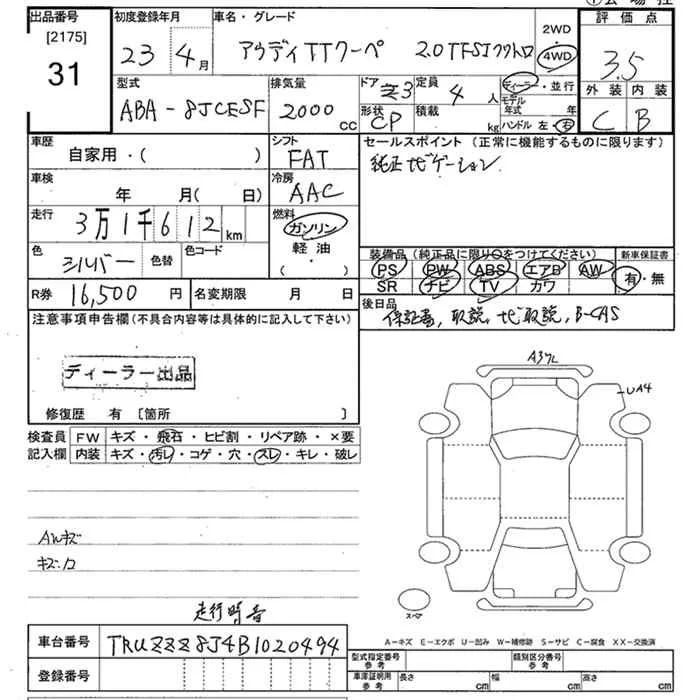 出品番号
[2175]
31
初度登録年月
23年4月
車名・グレード
アウディTTクーペ 2.0TFSIクワトロ
2WD
4WD
評価点
3.5
外装 内装
C B
型式
ABA-8JCESF
排気量
2000 CC
ドア
3
形状
CP
定員
4人
積載
kg
ディーラー・並行
モデル年式 年
ハンドル 左・右
車歴
自家用・( )
シフト
FAT
セールスポイント (正常に機能するものに限ります)
純正ナビゲーション
車検
年 月(日)
冷房
AAC
走行
3万1千612km
燃料
ガソリン
軽油
( ・ )
色
シルバー
色替
色コード
装備品 (純正品に限り○をつけてください)
PS PW ABS エアB AW
SR ナビ TV カワ
新車保証書
有・無
R券 16,500円
名変期限 月 日
後日品
保証書, 取説, ナビ取説, B-CAS
注意事項申告欄(不具合内容等は具体的に記入して下さい)
ディーラー出品
修復歴 有 〔箇所 〕
検査員記入欄
FW キズ・飛石・ヒビ割・リペア跡・×要
内装 キズ・汚レ・コゲ・穴・スレ・キレ・破レ
UA4
AWキズ
走行時音
スペア
A-キズ E-エクボ U-凹み W-補修跡 S-サビ C-腐食 XX-交換済
車台番号
TRUZZZ8J4B1020494
登録番号
型式指定番号
参考
類別区分番号
参考
車庫証明用
参考
長さ cm
幅 cm
高さ cm